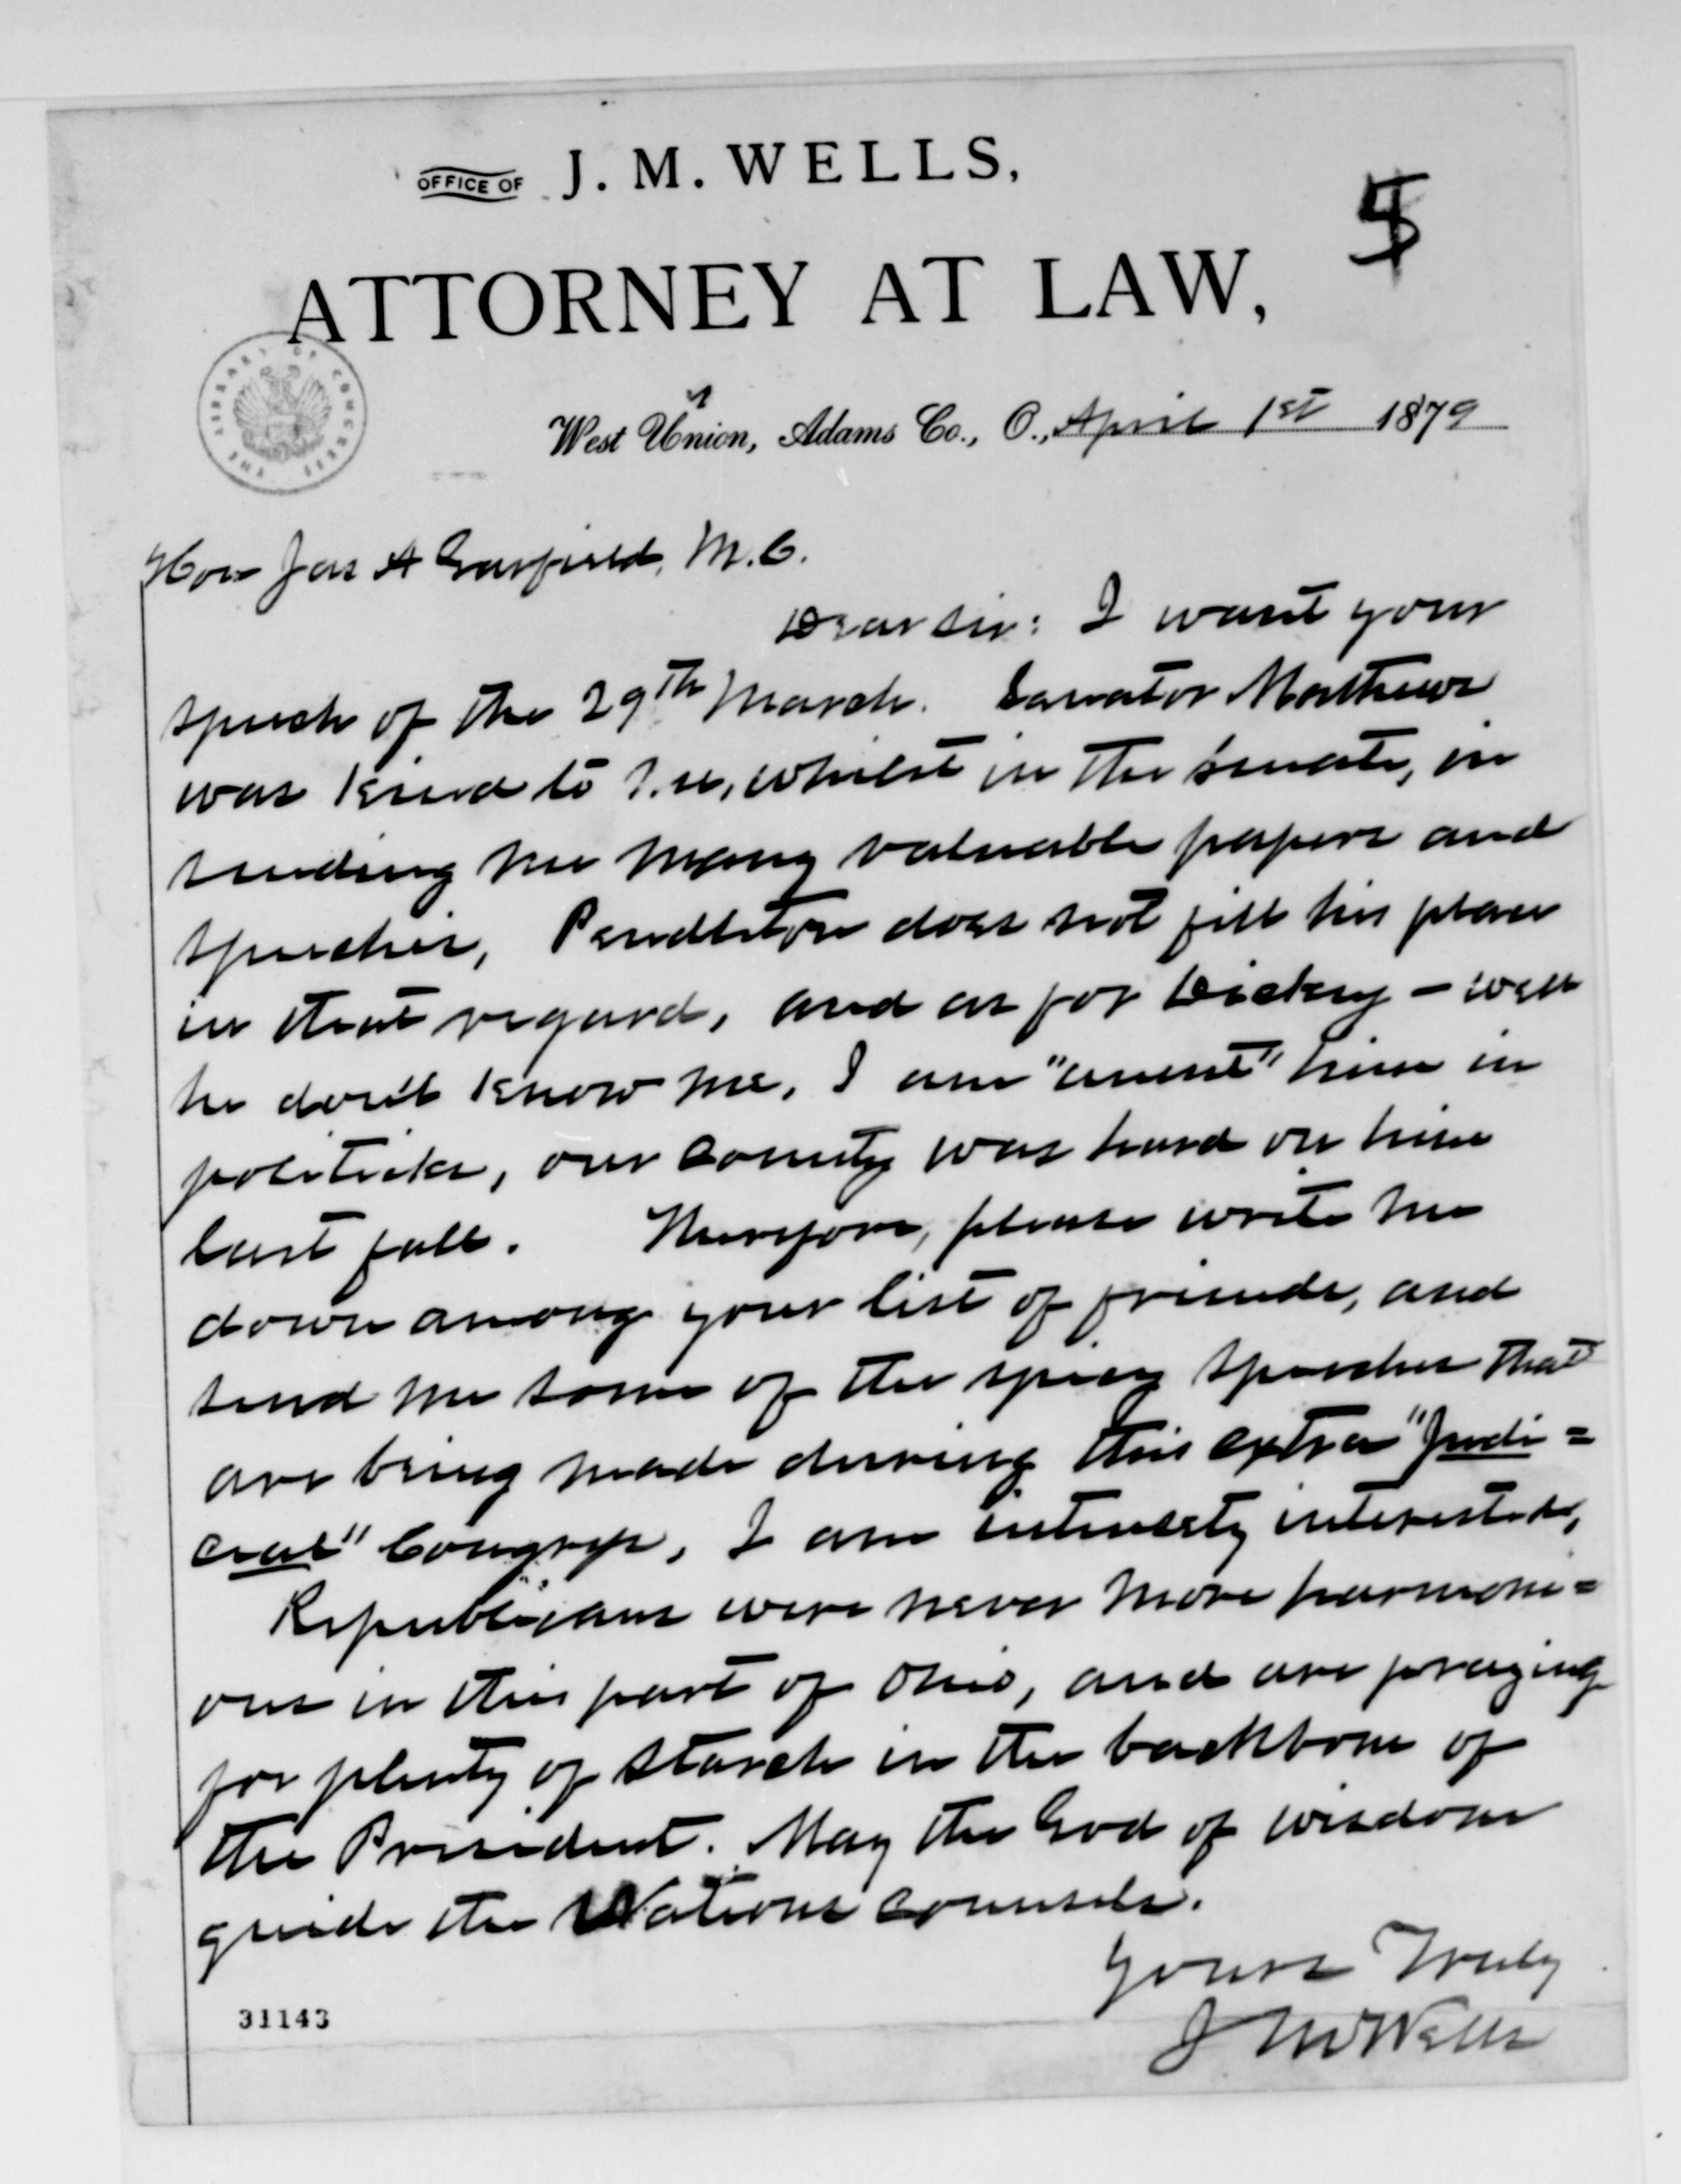 OFFICE OF J. M. WELLS,
5
ATTORNEY AT LAW,
THE LIBRARY OF CONGRESS
West Union, Adams Co., O., April 1st 1879
Hon Jas A Garfield, M.C.
Dear sir: I want your
speech of the 29th March. Senator Matthews
was kind to me, whilst in the Senate, in
sending me many valuable papers and
speeches, Pendleton does not fill his place
in that regard, and as for Dickey – well
he don't know me, I am "anent" him in
politicks, our County was hard on him
last fall. Therefore, please write me
down among your list of friends, and
send me some of the spicy speeches that
are being made during this extra "Judi=
cial" Congress, I am intensely interested,
Republicans were never more harmoni=
ous in this part of Ohio, and are praying
for plenty of starch in the backbone of
the President. May the God of wisdom
guide the Nations counsels.
Yours Truly
J M Wells
31143